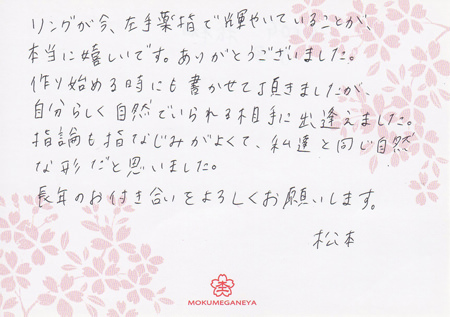 リングが今、左手薬指で輝やいていることが、
本当に嬉しいです。ありがとうございました。
作り始める時にも書かせて頂きましたが、
自分らしく自然でいられる相手に出逢えました。
指論も指なじみがよくて、私達と同じ自然
な形だと思いました。
長年のお付き合いをよろしくお願いします。
松本
MOKUMEGANEYA